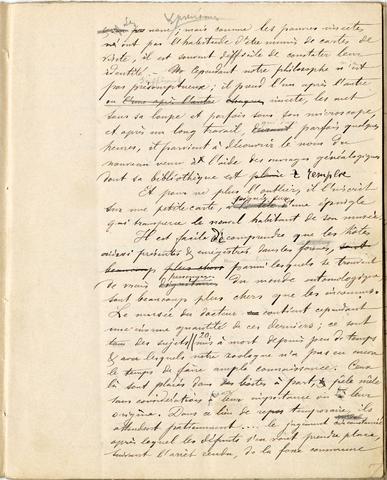 nom, mais comme les pauvres insectes,
n'ont pas l'habitude d'être munis de cartes de
visite, il est souvent difficile de constater leur
identité. — cependant notre philosophe n'est
pas présomptueux; il prend l'un après l'autre
insecte, les met
sous sa loupe et parfois sous son microscope,
et après un long travail, parfois quelques
heures, il parvient à découvrir le nom du
nouveau venu à l'aide des ouvrages généalogiques
dont sa bibliothèque est remplie
Et pour ne plus l'oublier, il l'écrit
sur une petite carte, d'une épingle
qui transperce le nouvel habitant de son musée.
Il est facile de comprendre que les hôtes
ainsi présentés & enregistrés dans les
parmi lesquels se trouvent
de vrais personnages du monde entomologique
sont beaucoup plus chers que les inconnus.
Le musée du docteur contient cependant
une énorme quantité de ces derniers; ce sont
des sujets mis à mort depuis peu de temps
& avec lesquels notre zoologue n'a pas eu encore
le temps de faire ample connaissance. Ceux
là sont placés dans des boîtes à part, & pêle mêle
sans considérations à leur importance ou à leur
origine. Dans ce lieu de repos temporaire, ils
attendent patiemment.... le jugement
après lequel les défunts s'en vont prendre place,
suivant l'arrêt rendu, de la fosse commune